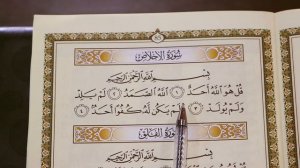 سُورَةُ الإِخْلَاصِ
بِسْمِ اللَّهِ الرَّحْمَٰنِ الرَّحِيمِ
قُلْ هُوَ اللَّهُ أَحَدٌ ١ اللَّهُ الصَّمَدُ ٢ لَمْ يَلِدْ
وَلَمْ يُولَدْ ٣ وَلَمْ يَكُن لَّهُ كُفُوًا أَحَدٌ ٤
سُورَةُ الفَلَقِ
بِسْمِ اللَّهِ الرَّحْمَٰنِ الرَّحِيمِ